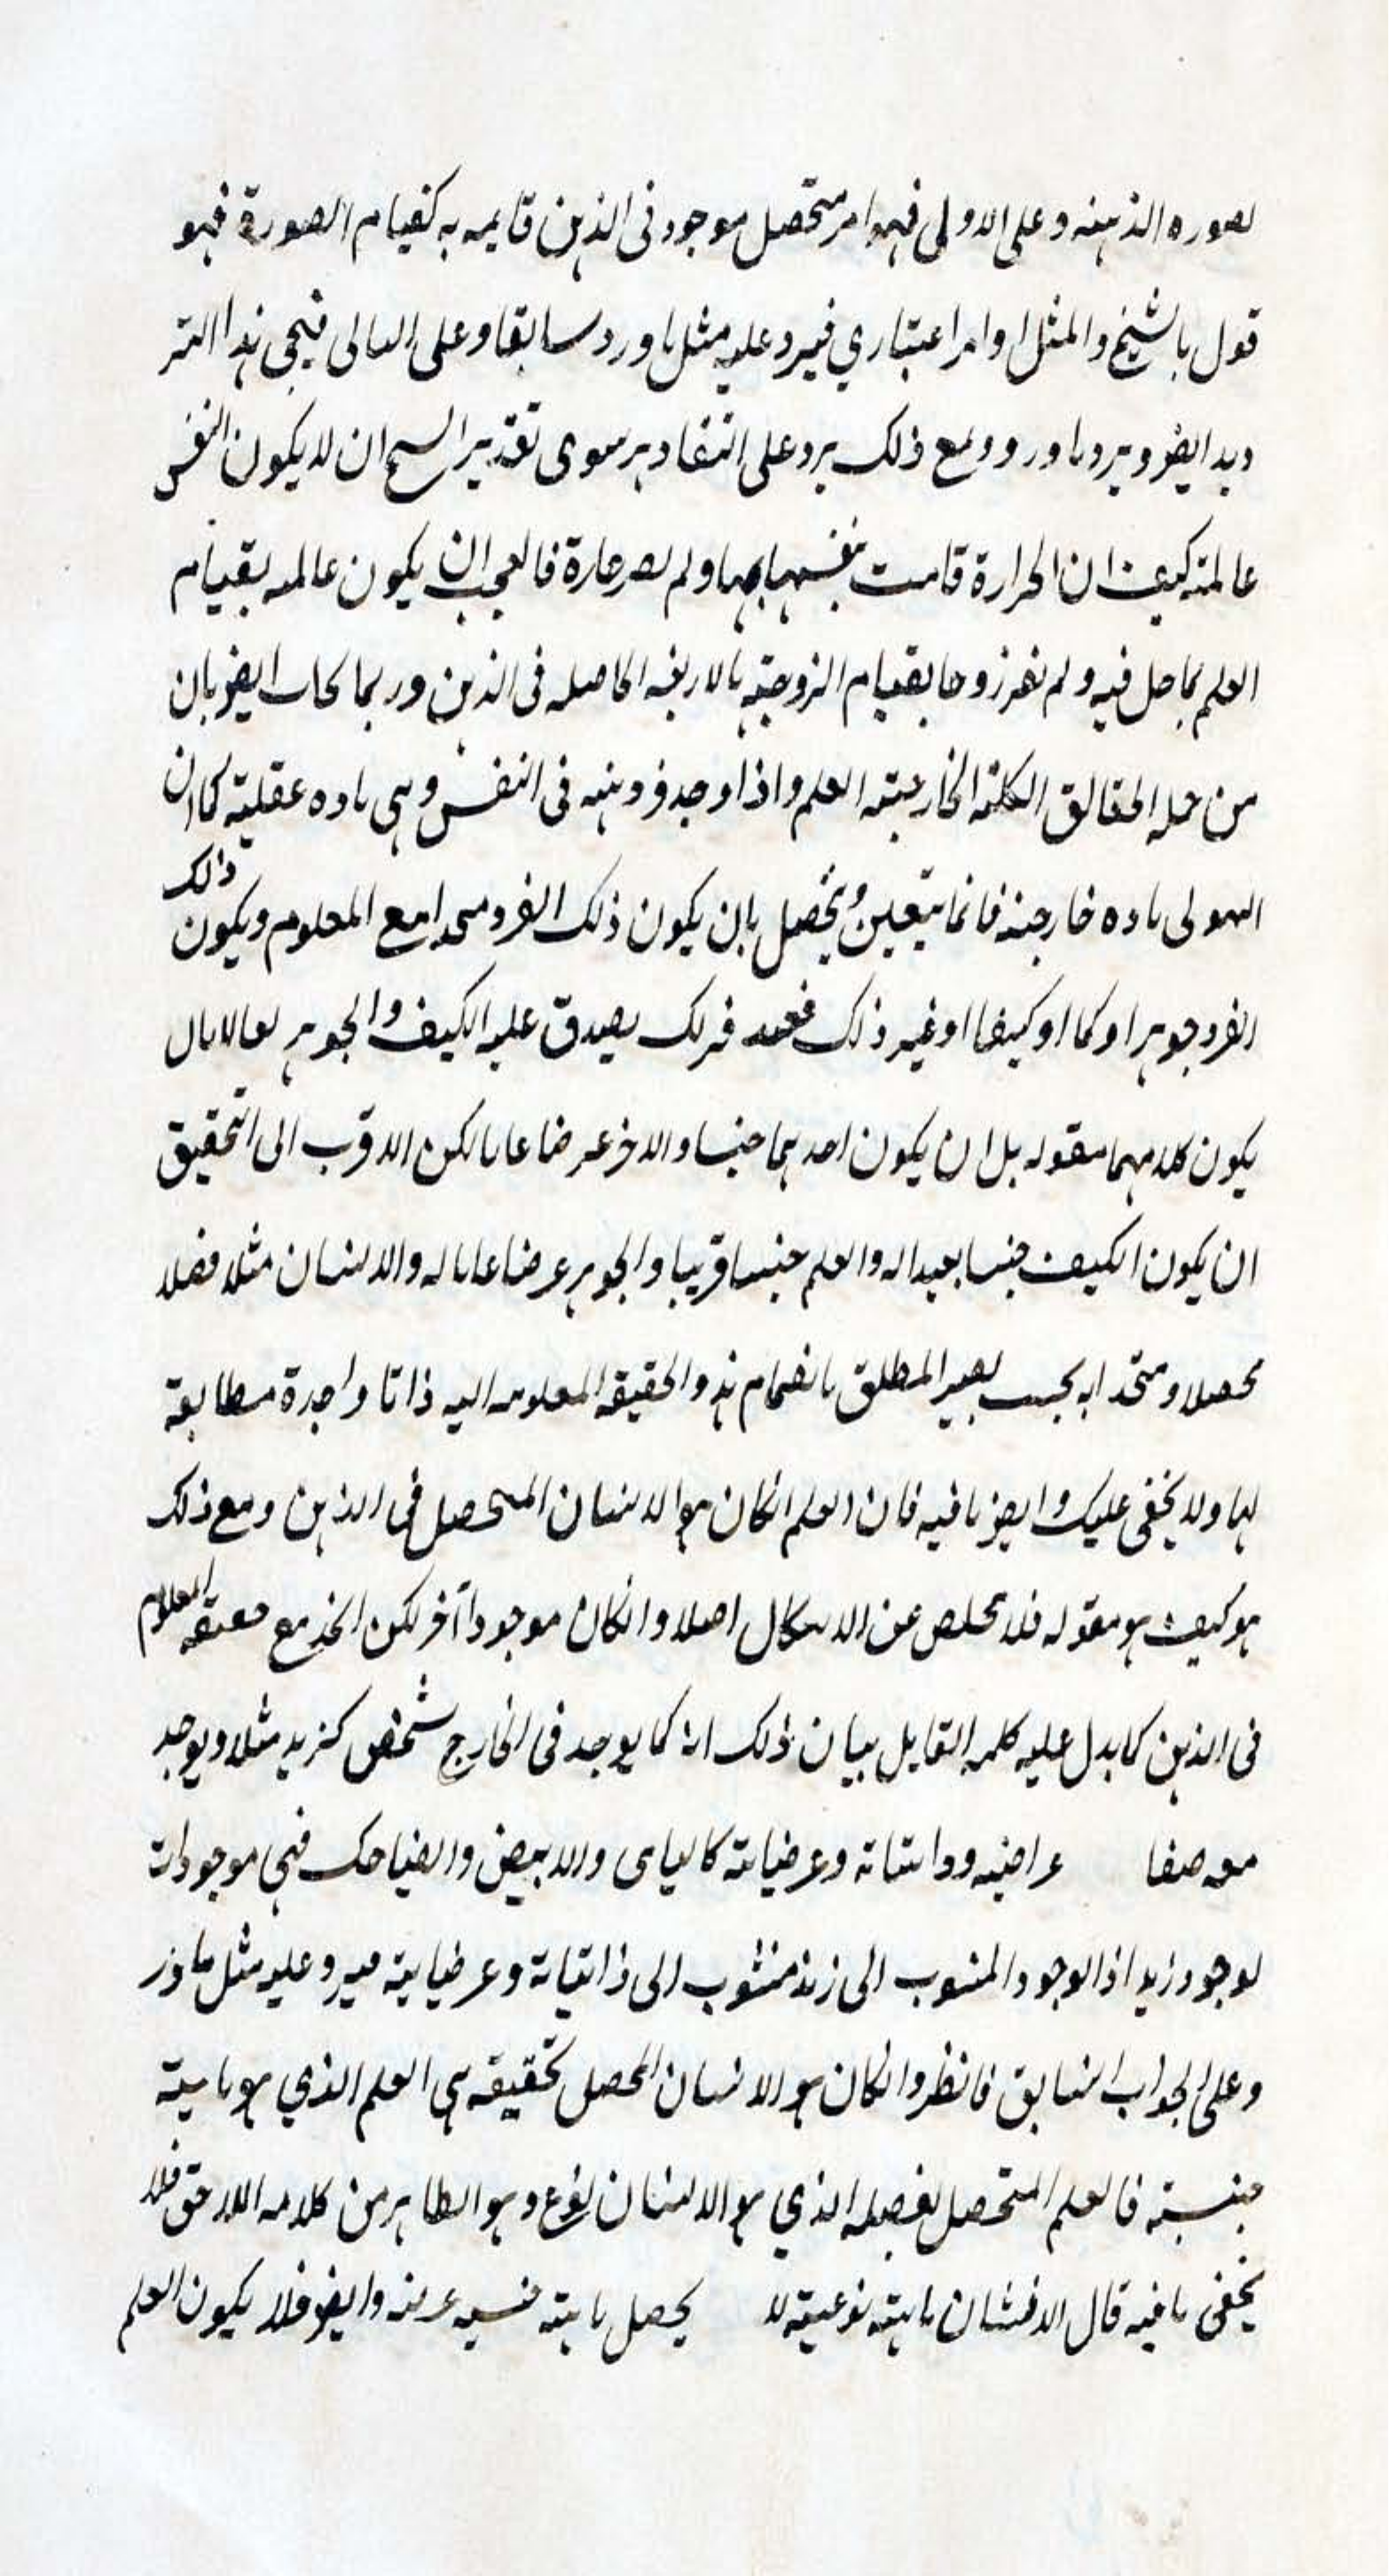 لصوره الذهنيه وعلى الاولى فهو امر متحصل موجود فى الذهن قايمه به كقيام الصورة فهو
قول بالشبح والمثل او امر اعتبارى فيرد عليه مثل ما ورد سابقا وعلى الثانى فيجى هذا التر
ديد ايضا ويرد ما ورد ومع ذلك يرد على التقادير سوى تقدير الشبح ان لا يكون النفس
عالمة كيف ان الحرارة قامت بنفسها بها ولم تصر حارة فالعجب ان يكون عالمه بقيام
العلم بما حل فيه ولم تصر زوجا بقيام الزوجية بالاربعه الحاصله فى الذهن وربما يجاب ايضا بان
من جمله الحقايق الكليه الخارجيه العلم واذا وجد فرد منه فى النفس وهى ماده عقلية كما ان
الهيولى ماده خارجيه فانما يتعين ويتحصل بان يكون ذلك الفرد متحدا مع المعلوم ويكون ذلك
الفرد جوهرا او كما او كيفا او غير ذلك فرلك يصدق عليه الكيف والجوهر
يكون كلاهما مقوله بل ان يكون احدهما جنسا والاخر عرضا عاما لكن الاقرب الى التحقيق
ان يكون الكيف جنسا بعيدا له والعلم جنسا قريبا والجوهر عرضا عاما له والانسان مثلا فصلا
محصلا ومتحدا به بحسب يصير المطلق بانضمام هذه الحقيقه المعلومه اليه ذاتا واحدة مطابقة
لها ولا يخفى عليك ايضا ما فيه فان العلم انكان هو الانسان المتحصل فى الذهن ومع ذلك
هو كيف هو مقوله فلا تخلص عن الاشكال اصلا وانكان موجودا آخر لكن اتحد مع حقيقه المعلوم
فى الذهن كما يدل عليه كلمه القايل بيان ذلك انه كما يوجد فى الخارج شخص كزيد مثلا ويوجد
معه صفا عراضيه وذاتياته وعرضياته كالماشى والابيض والضاحك فهى موجودات
لوجود زيد اذ الوجود المنسوب الى زيد منسوب الى ذاتياته وعرضياته فيرد عليه مثل ما ورد
وعلى الجواب السابق فانظر وانكان هو الانسان المحصل بحقيقه هى العلم الذي هو ماهية
جنسية فالعلم المتحصل بفصله الذي هو الانسان نوع وهو الظاهر من كلامه اللاحق فلا
يخفى ما فيه قال الانسان ماهية نوعية لا يحصل ماهية جنسيه وايضا فلا يكون العلم